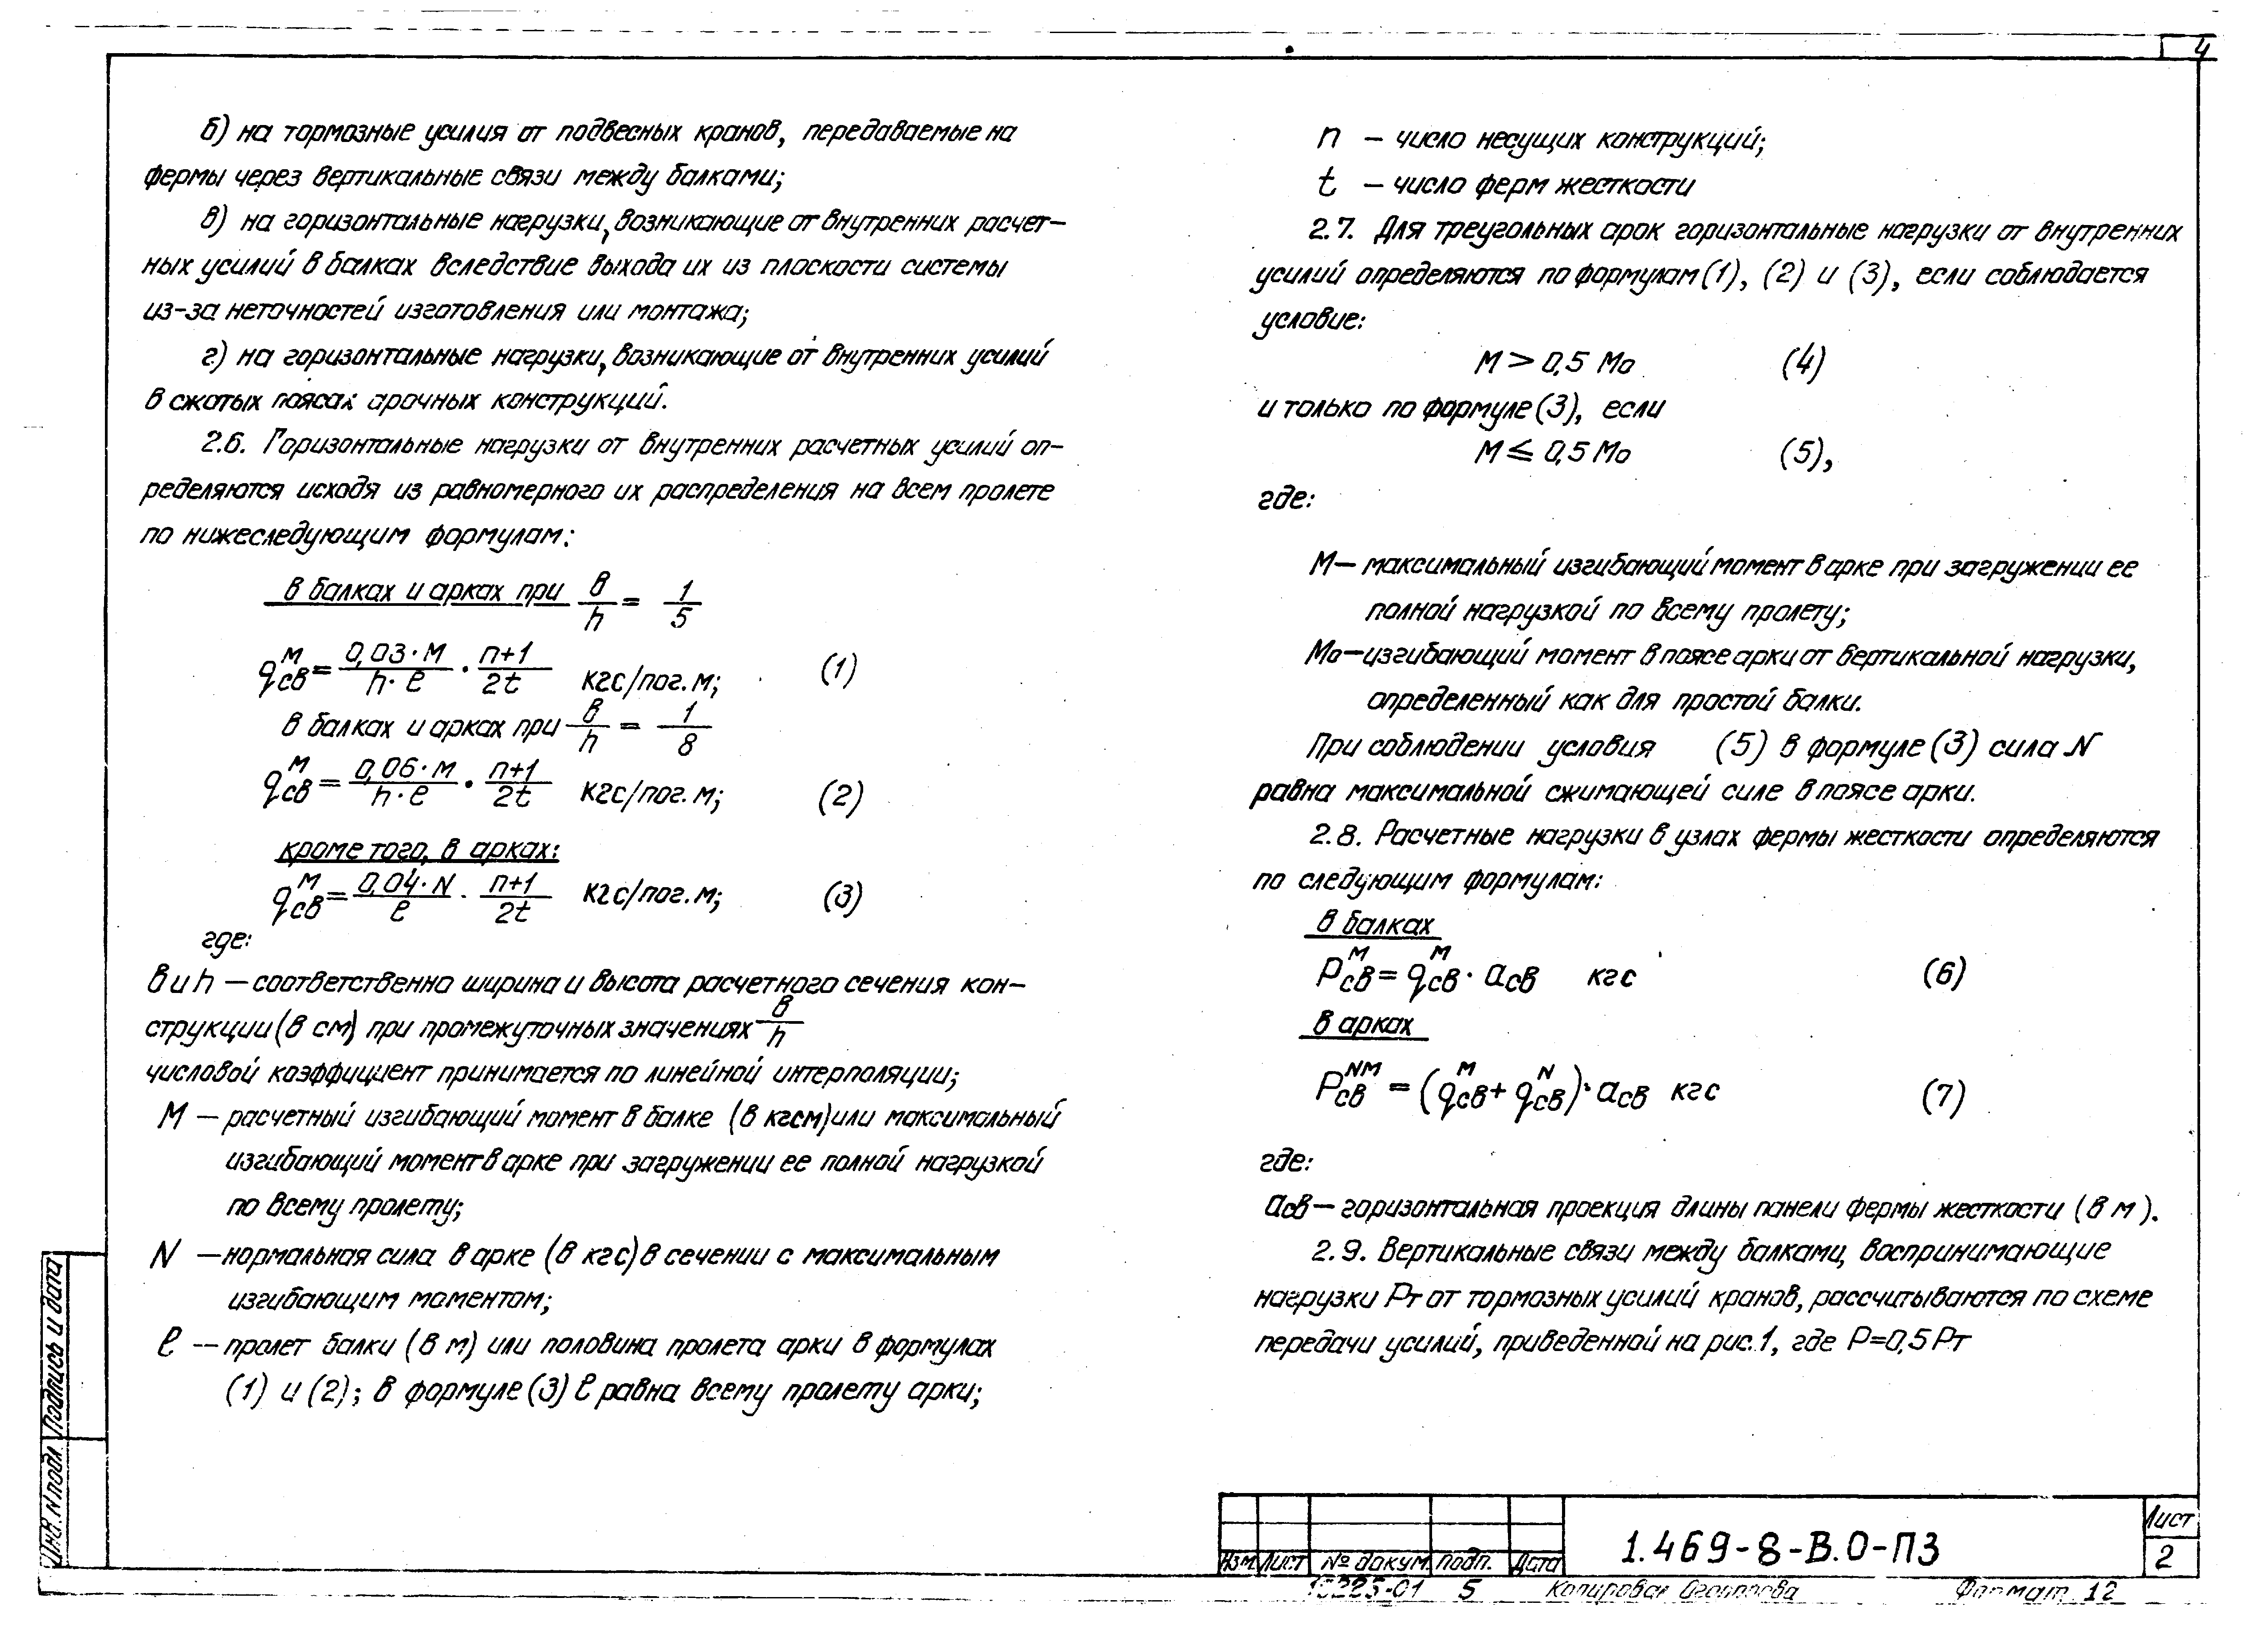 4
б) на тормозные усилия от подвесных кранов, передаваемые на
фермы через вертикальные связи между балками;
в) на горизонтальные нагрузки, возникающие от внутренних расчет-
ных усилий в балках вследствие выхода их из плоскости системы
из-за неточностей изготовления или монтажа;
г) на горизонтальные нагрузки, возникающие от внутренних усилий
в сжатых поясах арочных конструкций.
2.6. Горизонтальные нагрузки от внутренних расчетных усилий оп-
ределяются исходя из равномерного их распределения на всем пролете
по нижеследующим формулам:
в балках и арках при в/h = 1/5
q^М_св = 0,03·М/h·ℓ · n+1/2t кгс/пог.м; (1)
в балках и арках при в/h = 1/8
q^М_св = 0,06·М/h·ℓ · n+1/2t кгс/пог.м; (2)
кроме того, в арках:
q^М_св = 0,04·N/ℓ · n+1/2t кгс/пог.м; (3)
где:
в и h — соответственно ширина и высота расчетного сечения кон-
струкции (в см) при промежуточных значениях в/h
числовой коэффициент принимается по линейной интерполяции;
М — расчетный изгибающий момент в балке (в кгсм) или максимальный
изгибающий момент в арке при загружении ее полной нагрузкой
по всему пролету;
N — нормальная сила в арке (в кгс) в сечении с максимальным
изгибающим моментом;
ℓ — пролет балки (в м) или половина пролета арки в формулах
(1) и (2); в формуле (3) ℓ равна всему пролету арки;
n — число несущих конструкций;
t — число ферм жесткости
2.7. Для треугольных арок горизонтальные нагрузки от внутренних
усилий определяются по формулам (1), (2) и (3), если соблюдается
условие:
М > 0,5 Мо (4)
и только по формуле (3), если
М ≤ 0,5 Мо (5),
где:
М — максимальный изгибающий момент в арке при загружении ее
полной нагрузкой по всему пролету;
Мо — изгибающий момент в поясе арки от вертикальной нагрузки,
определенный как для простой балки.
При соблюдении условия (5) в формуле (3) сила N
равна максимальной сжимающей силе в поясе арки.
2.8. Расчетные нагрузки в узлах фермы жесткости определяются
по следующим формулам:
в балках
Р^М_св = q^М_св · a_св кгс (6)
в арках
Р^NM_св = (q^М_св + q^N_св) · a_св кгс (7)
где:
a_св — горизонтальная проекция длины панели фермы жесткости (в м).
2.9. Вертикальные связи между балками, воспринимающие
нагрузки Рт от тормозных усилий кранов, рассчитываются по схеме
передачи усилий, приведенной на рис.1, где Р=0,5 Рт
Инв. N подл Подпись и дата
Изм Лист № докум подп. Дата
1.469-8-В.0-ПЗ
Лист
2
5 Копировал Формат 12